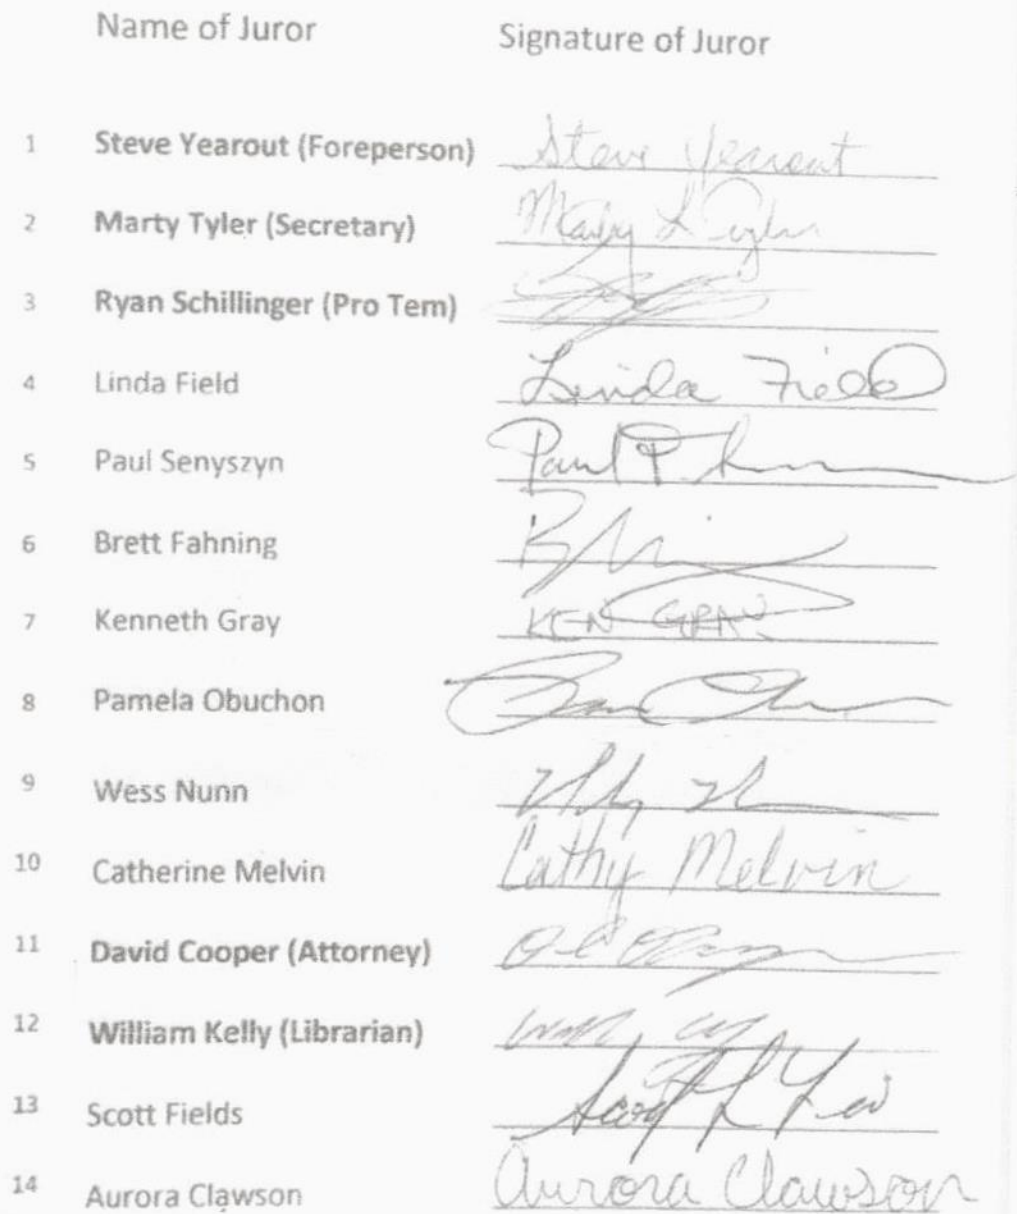 Name of Juror Signature of Juror
1 Steve Yearout (Foreperson) Steve Yearout
2 Marty Tyler (Secretary) L Tyler
3 Ryan Schillinger (Pro Tem)
4 Linda Field Linda Field
5 Paul Senyszyn Paul P.
6 Brett Fahning
7 Kenneth Gray KEN GRAY
8 Pamela Obuchon
9 Wess Nunn
10 Catherine Melvin Cathy Melvin
11 David Cooper (Attorney)
12 William Kelly (Librarian)
13 Scott Fields Scott L
14 Aurora Clawson Aurora Clawson